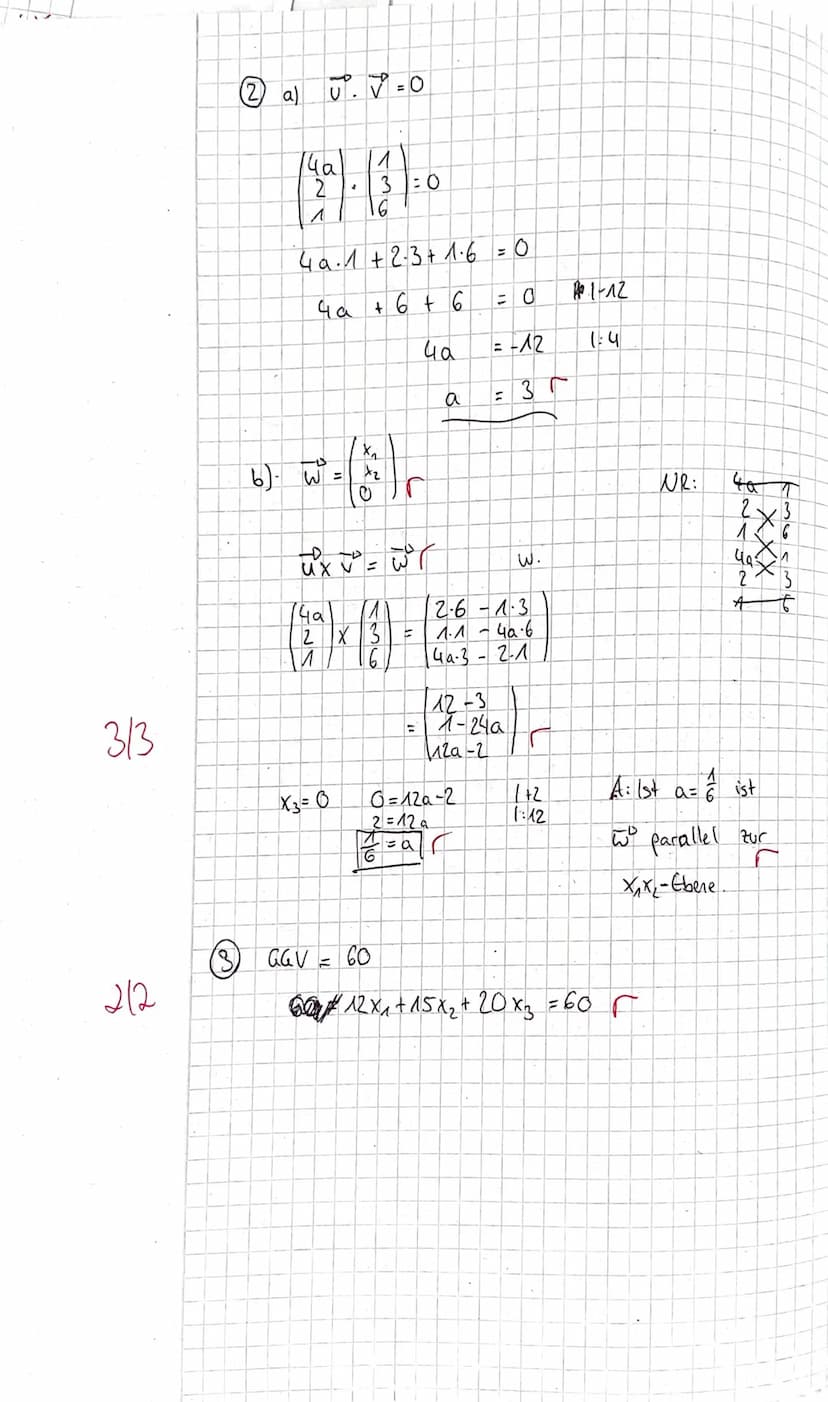 ② a) u⃗ · v⃗ = 0
(4a 2 1) · (1 3 6) = 0
4a·1 + 2·3 + 1·6 = 0
4a + 6 + 6 = 0 |-12
4a = -12 |:4
a = 3 r
b) w⃗ = (x₁ x₂ 0) r
NR: 4a 1
2 3
1 6
4a 1
2 3
1 6
u⃗ x v⃗ = w⃗ r w.
(4a 2 1) x (1 3 6) = (2·6 - 1·3 1·1 - 4a·6 4a·3 - 2·1)
= (12-3 1-24a 12a-2) r
3/3
x₃=0 0=12a-2 |+2
2=12a |:12
1/6 = a r
A: Ist a= 1/6 ist
w⃗ parallel zur r
x₁x₂-Ebene.
③ GGV = 60
2/2
12x₁+15x₂+20x₃ =60 r